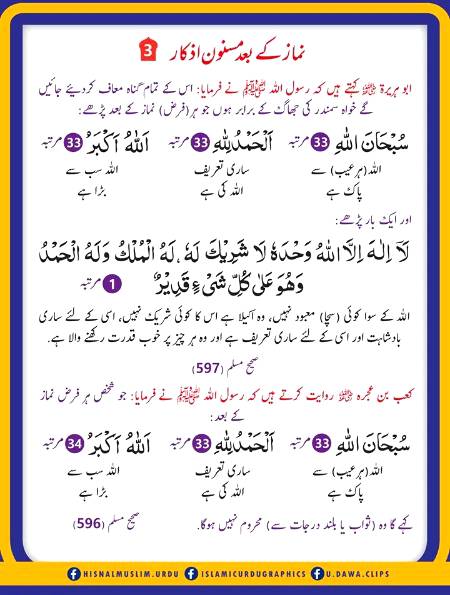 نماز کے بعد مسنون اذکار 3
ابو ہریرۃ ﷜ کہتے ہیں کہ رسول اللہ ﷺ نے فرمایا: اس کے تمام گناہ معاف کر دیئے جائیں
گے خواہ سمندر کی جھاگ کے برابر ہوں جو ہر (فرض) نماز کے بعد پڑھے:
سُبْحَانَ اللهِ 33 مرتبہ اَلْحَمْدُلِلّٰهِ 33 مرتبہ اَللهُ اَكْبَرُ 33 مرتبہ
اللہ (ہر عیب) سے ساری تعریف اللہ سب سے
پاک ہے اللہ کی ہے بڑا ہے
اور ایک بار پڑھے:
لَآ اِلٰهَ اِلَّا اللهُ وَحْدَهٗ لَا شَرِيْكَ لَهٗ، لَهُ الْمُلْكُ وَلَهُ الْحَمْدُ
وَهُوَ عَلٰى كُلِّ شَيْءٍ قَدِيْرٌ 1 مرتبہ
اللہ کے سوا کوئی (سچا) معبود نہیں، وہ اکیلا ہے اس کا کوئی شریک نہیں، اسی کے لئے ساری
بادشاہت اور اسی کے لئے ساری تعریف ہے اور وہ ہر چیز پر خوب قدرت رکھنے والا ہے۔
صحیح مسلم (597)
کعب بن عجرہ ﷜ روایت کرتے ہیں کہ رسول اللہ ﷺ نے فرمایا: جو شخص ہر فرض نماز
کے بعد:
سُبْحَانَ اللهِ 33 مرتبہ اَلْحَمْدُلِلّٰهِ 33 مرتبہ اَللهُ اَكْبَرُ 34 مرتبہ
اللہ (ہر عیب) سے ساری تعریف اللہ سب سے
پاک ہے اللہ کی ہے بڑا ہے
کہے گا وہ (ثواب یا بلند درجات سے) محروم نہیں ہوگا۔ صحیح مسلم (596)
HISNALMUSLIM.URDU ISLAMICURDUGRAPHICS U.DAWA.CLIPS